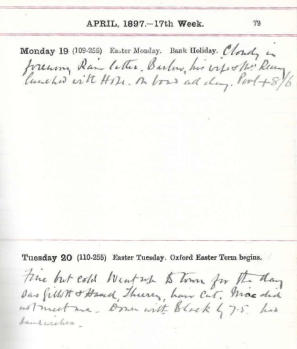 APRIL, 1897.—17th Week. 79
Monday 19 (109-255) Easter Monday. Bank Holiday. Cloudy in
forenoon, Rain later. Barlow, his wife & Mr
lunched with Hope. on all day. Pool + 8/6
Tuesday 20 (110-255) Easter Tuesday. Oxford Easter Term begins.
Fine but cold Went up to town for the day
Saw Gillott & Hand, hair cut. did
not meet me. Down with Black by 7.5 had
sandwiches.